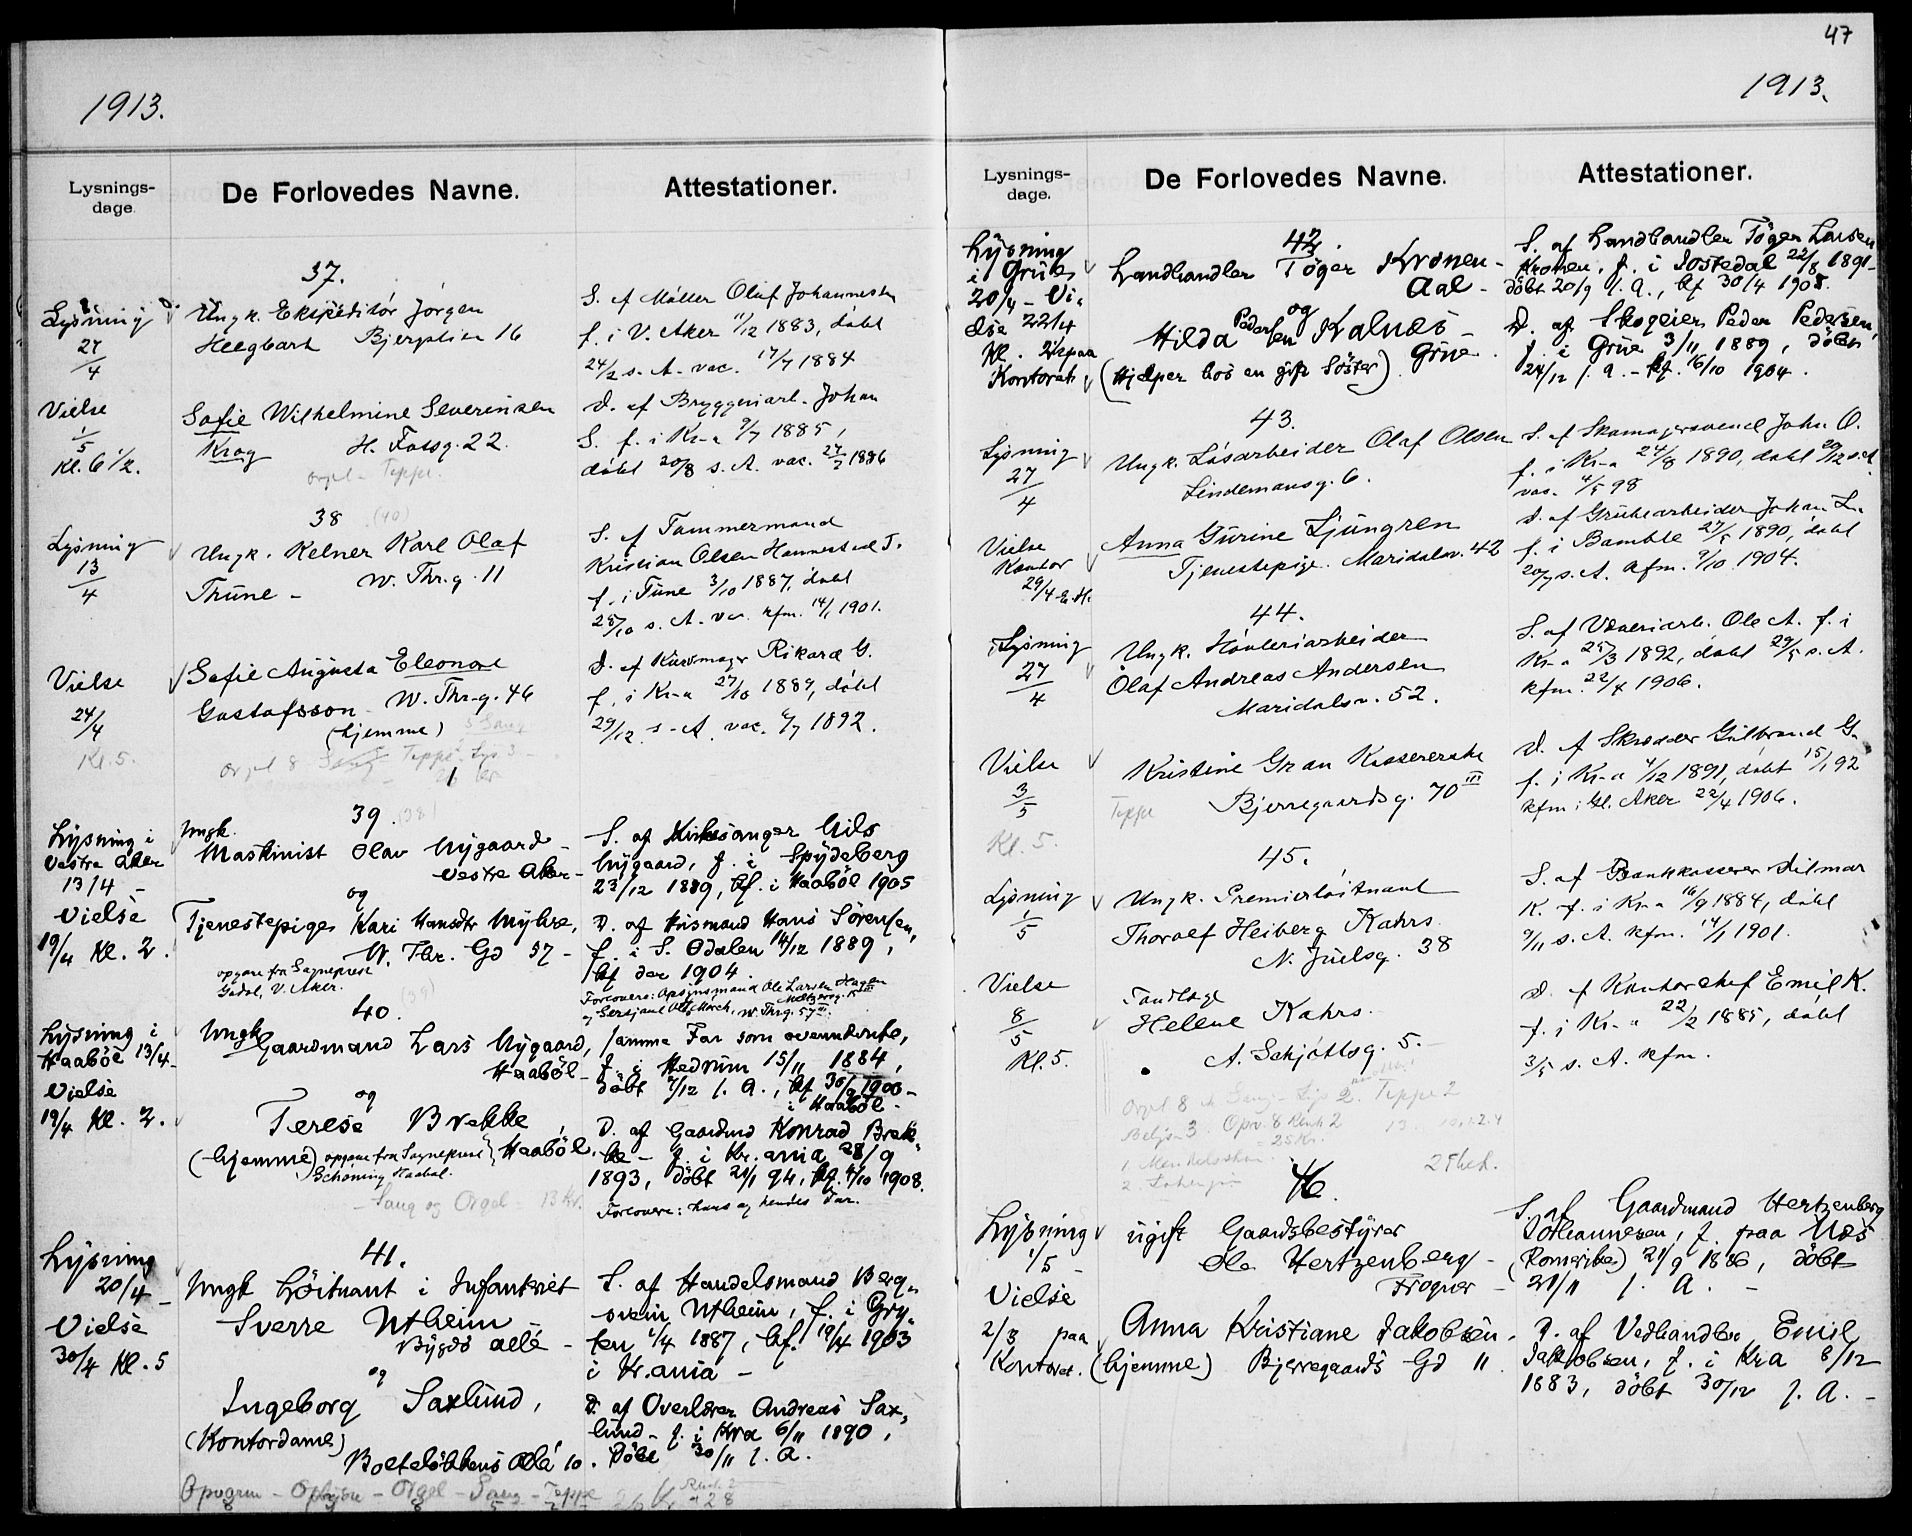 1913.
Lysnings-
dage.
De Forlovedes Navne.
Attestationer.
37.
Lysning
27/4
Ungk. Ekspeditør Jørgen
Bjergstien 16
S. af Møller Oluf Johannesen
f. i V. Aker 11/12 1883, døbt
24/2 s. A. vac. 17/7 1884
Vielse
1/5
Kl. 6 1/2.
Sofie Wilhelmine Severinsen
Krog H. Fossg. 22.
Orgel - Teppe.
D. af Bryggeriarb. Johan
S. f. i Kr-a 9/7 1885,
døbt 20/8 s. A. vac. 27/7 1886
38 (40)
Lysning
13/4
Ungk. Kelner Karl Olaf
Thune - W. Thr. g. 11
S. af Tømmermand
Kristian Olsen Hannestad T.
f. i Tune 3/10 1887, døbt
28/10 s. A. vac. kfm. 14/1 1901.
Vielse
24/4
Kl. 5.
Sofie Augusta Eleonore
Gustafsson - W. Thr. g. 46
(hjemme)
D. af Kurvmager Rikard G.
f. i Kr-a 27/10 1889, døbt
29/12 s. A. vac. 6/7 1892.
39 (38)
Lysning i
Vestre Aker
13/4 -
Ungk.
Maskinist Olav Nygaard -
Vestre Aker -
og
S. af Kirkesanger Nils
Nygaard, f. i Spydeberg
23/12 1889, kf. i Haabøl 1905
Vielse
19/4 Kl. 2.
Tjenestepige Kari Hansdtr Myhre,
W. Thr. Gd 57 -
opgave fra Sogneprest
Gadol, V. Aker.
D. af Husmand Hans Sørensen,
f. i S. Odalen 14/12 1889,
kf der 1904
Forlovere: Opsynsmand Ole Larsen Hagen
og Sersjant Olaf Morck, W. Thrg. 57 III.
40. (39)
Lysning i
Haabøl 13/4 -
Ungk
Gaardmand Lars Nygaard,
Haabøl -
og
samme Far som ovennævnte,
f. i Hedrum 15/11 1884,
døbt 7/12 s. A., kf 30/9 1900 -
i Haabøl -
Vielse
19/4 Kl. 2.
Terese Brekke,
(hjemme) opgave fra Sogneprest Haabøl.
Schøning Haabøl.
- Sang og Orgel - 13 Kr.
D. af Gaardmd Konrad Brek-
ke - f. i Kr.ania 28/9
1893, døbt 21/1 94, kf. 4/10 1908.
Forlovere: hans og hendes Far.
41.
Lysning
20/4 -
Ungk Løitnant i Infanteriet
Sverre Utheim -
Bygdø allé -
og
S. af Handelsmand Berg-
svein Utheim, f. i Gry-
ten 1/4 1887, kf. 19/4 1903
i Kr.ania -
Vielse
30/4 Kl. 5
Ingeborg Saxlund,
(Kontordame)
Bolteløkkens Allé 10.
D. af Overlærer Andreas Sax-
lund - f. i Kra 6/11 1890,
døbt 30/11 s. A.
Opvarm - Oplysn - Orgel - Sang - Teppe
47
1913.
Lysnings-
dage.
De Forlovedes Navne.
Attestationer.
42.
Lysning
i Grue
20/4 - Vi-
else 22/4
Kl. 2 1/2 paa
Kontoret
Landhandler Tøger Kronen -
Aal -
og
Hilda Pedersen Kalnæs -
(Hjelper hos en gift Søster) Grue
S. af Landhandler Tøger Larsen
Kronen, f. i Jostedal 22/8 1891 -
døbt 20/9 s. A., kf 30/4 1905.
D. af Skogeier Peder Pedersen,
f. i Grue 3/11 1889, døbt
24/12 s. A. - kf. 16/10 1904.
43.
Lysning
27/4
Ungk. Løsarbeider Olaf Olsen
Lindemansg. 6.
S. af Skomagersvend John O.
f. i Kr-a 24/8 1890, døbt 29/12 s. A
vac. 4/5 98
Vielse
Kontor
29/4 E. H.
Anna Gurine Ljungren
Tjenestepige. Maridalsv. 42
D. af Grubearbeider Johan L.
f. i Bamble 27/5 1890, døbt
20/7 s. A. kfm. 9/10 1904.
44.
Lysning
27/4
Ungk. Høvleriarbeider
Olaf Andreas Andersen
Maridalsv. 52.
S. af Væveriarb. Ole A. f. i
Kr-a 25/3 1892, døbt 29/5 s. A.
kfm. 22/4 1906.
Vielse
3/5
Kl. 5.
Kristine Gran Kassererske
Teppe Bjerregaardsg. 70 III
D. af Skrædder Gulbrand G.
f. i Kr-a 4/12 1891, døbt 15/1 92
kfm. i Gl. Aker 22/4 1906.
45.
Lysning
1/5
Ungk. Premierløitnant
Thoralf Heiberg Kahrs.
N. Juelsg. 38
S. af Bankkasserer Hilmar
K. f. i Kr-a 16/9 1884, døbt
9/11 s. A. kfm. 14/1 1901.
Vielse
8/5
Kl. 5.
Tandlæge
Helene Kahrs.
A. Schjøttsg. 5.
D. af Kontorchef Emil K.
f. i Kr-a 22/2 1885, døbt
3/5 s. A. kfm.
46.
Lysning
1/5 -
ugift Gaardsbestyrer
Ole Hertzenberg -
Frogner -
S. af Gaardmand Hertzenberg
Johannesen, f. paa Næs
(Romerike) 21/9 1886, døbt
21/11 s. A. -
Vielse
2/3 paa
Kontoret.
Anna Kristiane Jakobsen.
(hjemme) Bjerregaards Gd 11
D. af Vedhandler Emil
Jakobsen, f. i Kra 8/12
1883, døbt 30/12 s. A. -